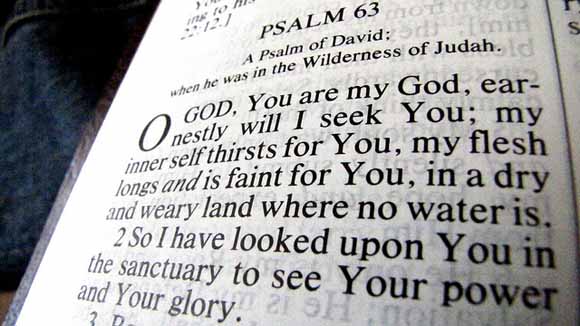 ing to his
22:12.1
PSALM 63
A Psalm of David;
when he was in the Wilderness of Judah.
O GOD, You are my God, ear-
nestly will I seek You; my
inner self thirsts for You, my flesh
longs and is faint for You, in a dry
and weary land where no water is.
2 So I have looked upon You in
the sanctuary to see Your power
and Your glory.
3